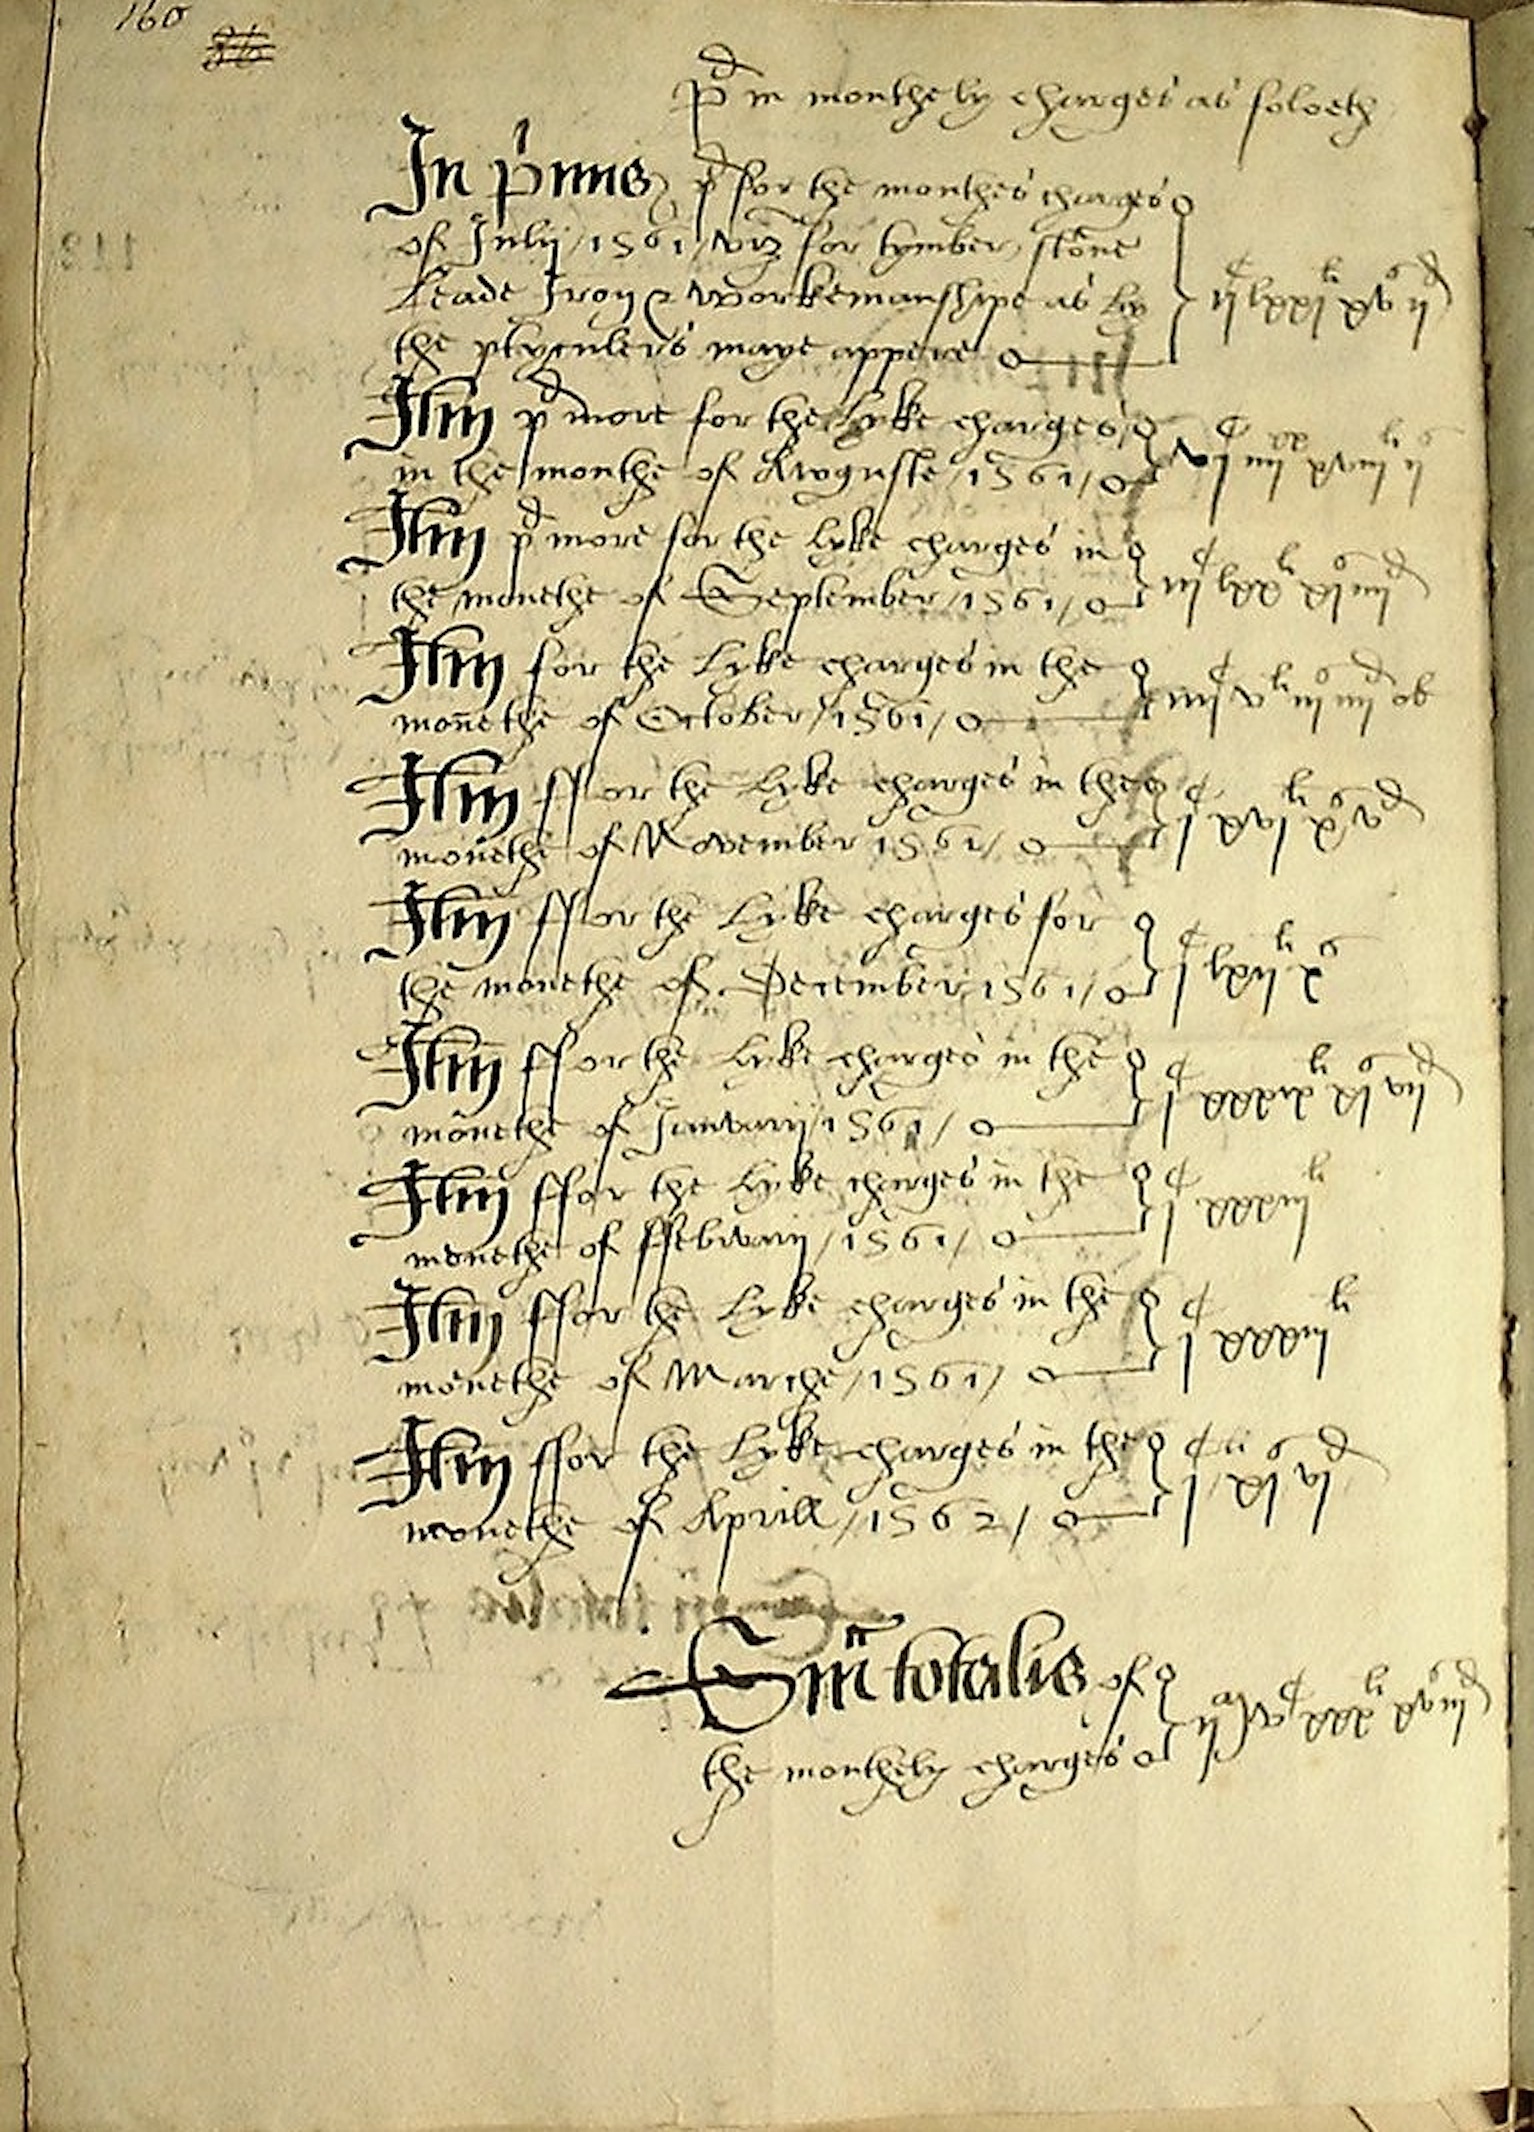 160
86
pd in monthely charges as foloeth
In p'mis pd for the monthes charges
of Julij / 1561 / viz for tymber, stone
Leade Iron & workemanshipe as by
the ptyculers maye appere ijC lxxjli xvs ijd
Itm pd more for the Lyke charges
in the monthe of Awguste / 1561 / vjC iiijxx xviijli ijs
Itm pd more for the Lyke charges in
the monethe of September / 1561 / iijC lxxli xjs iiijd
Itm for the Lyke charges in the
monethe of October / 1561 / iiijC vli iijs iiijd ob
Itm ffor the Lyke charges in the
monethe of November 1561 / jC xvjli xs vd
Itm ffor the Lyke charges for
the monethe of December 1561 / jC lxijli xs
Itm ffor the Lyke charges in the
monethe of Januarij / 1561 / jC xxxixli xjs vijd
Itm ffor the Lyke charges in the
monethe of ffebruarij / 1561 / jC xxxiijli
Itm ffor the Lyke charges in the
monethe of Marche / 1561 / jC xxxiijli
Itm ffor the Lyke charges in the
monethe of Aprill / 1562 / jC li xjs vjd
Sm totalis of
the monthely charges ijM vC xxxli xvs iijd